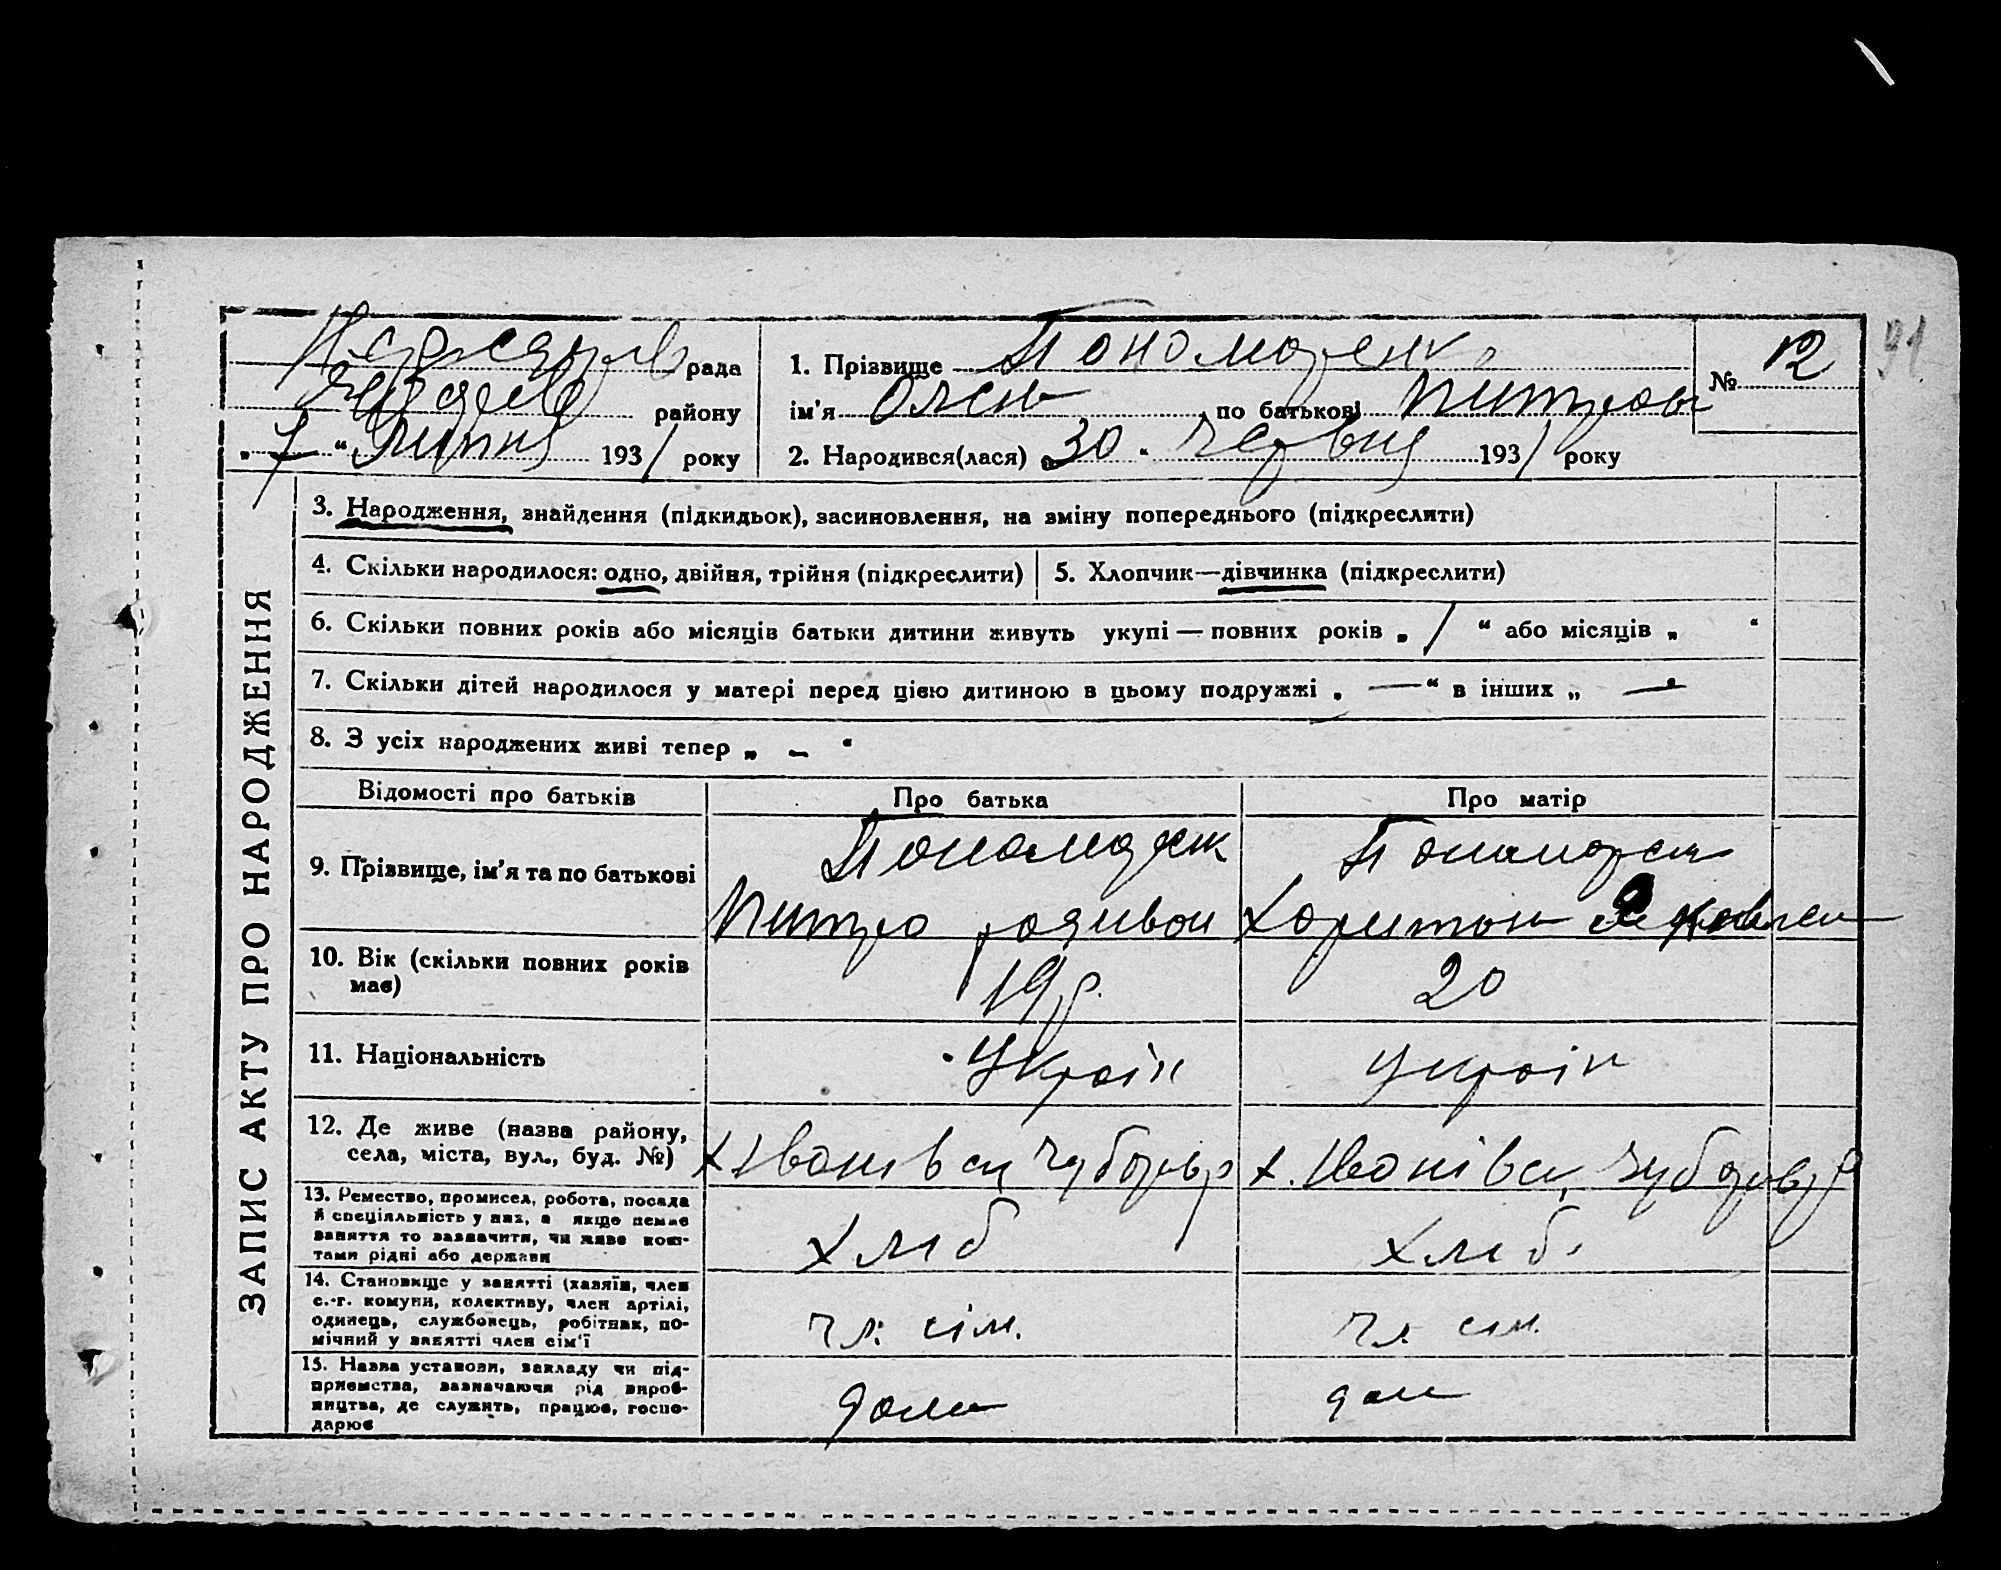 рада
району
„ 7 “ Липня 1931 року
1. Прізвище Пономаренко
ім’я Олена по батькові Дмитров
2. Народився(лася) „ 30 “ червня 1931 року
№ 12
91
ЗАПИС АКТУ ПРО НАРОДЖЕННЯ
3. Народження, знайдення (підкидьок), засиновлення, на зміну попереднього (підкреслити)
4. Скільки народилося: одно, двійня, трійня (підкреслити)
5. Хлопчик—дівчинка (підкреслити)
6. Скільки повних років або місяців батьки дитини живуть укупі — повних років „ / “ або місяців „ “
7. Скільки дітей народилося у матері перед цією дитиною в цьому подружжі „ — “ в інших „ — “
8. З усіх народжених живі тепер „ – “
Відомості про батьків
Про батька
Про матір
9. Прізвище, ім’я та по батькові
Пономаренк
Дмитро
Пономарен
10. Вік (скільки повних років
має)
19 р.
20
11. Національність
Україн
Україн
12. Де живе (назва району,
села, міста, вул., буд. №)
х Іванівка Чубар р
х. Іванівка, Чубар р
13. Ремество, промисел, робота, посада
й спеціяльність у них, а якщо немає
заняття то зазначити, чи живе кош-
тами рідні або держави
Хліб
Хліб.
14. Становище у занятті (хазяїн, член
с.-г. комуни, колективу, член артілі,
одинець, службовець, робітник, по-
мічний у занятті член сім’ї
чл. сім.
чл. сім.
15. Назва установи, закладу чи під-
приємства, зазначаючи рід вироб-
ництва, де служить, працює, госпо-
дарює
дома
дом